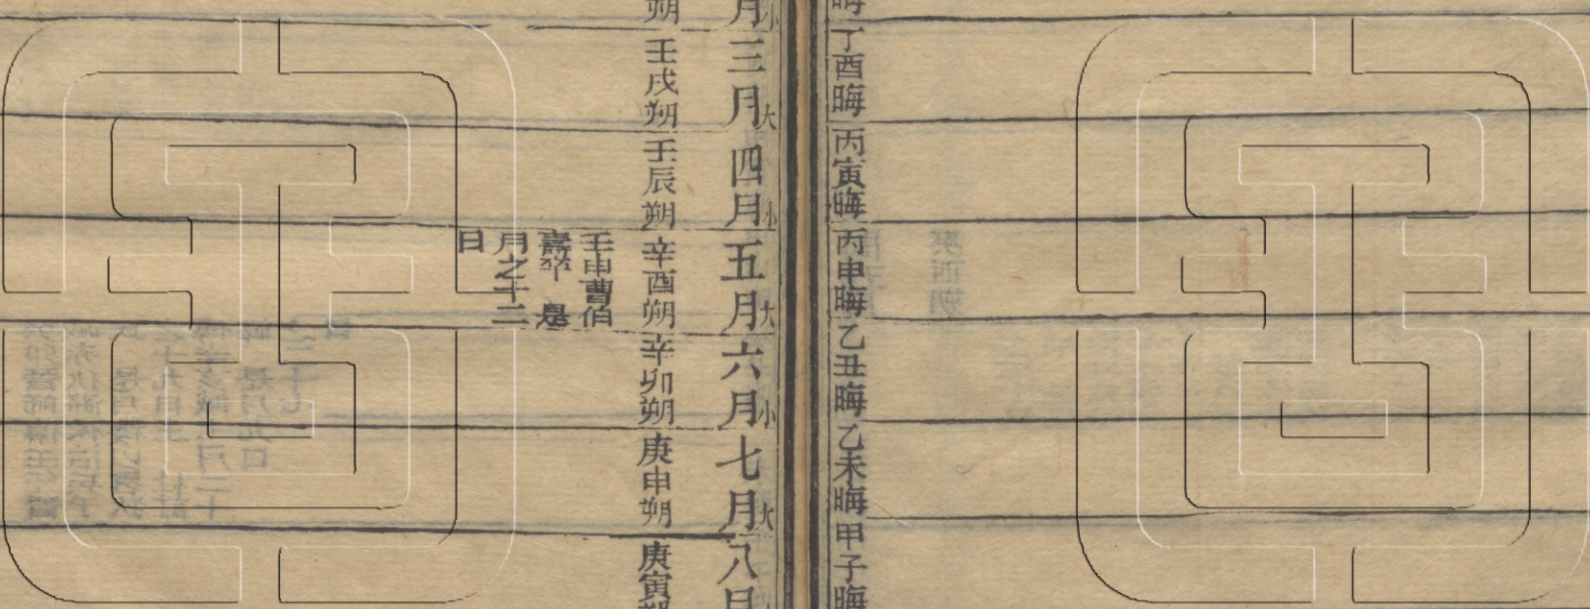 晦丁酉晦丙寅晦丙申晦乙丑晦乙未晦甲子晦
月小三月大四月小五月大六月小七月大八月
朔壬戌朔壬辰朔辛酉朔辛卯朔庚申朔庚寅朔
壬申曹伯
壽卒 是
月之十二
日